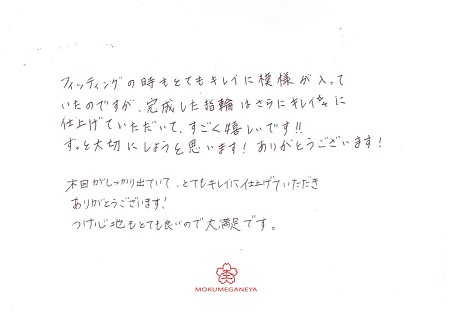 フィッティングの時もとてもキレイに模様が入って
いたのですが、完成した指輪はさらにキレイに
仕上げていただいて、すごく嬉しいです!!
ずっと大切にしようと思います! ありがとうございます!
木目がしっかり出ていて、とてもキレイに仕上げていただき
ありがとうございます!
つけ心地もとても良いので大満足です。
MOKUMEGANEYA